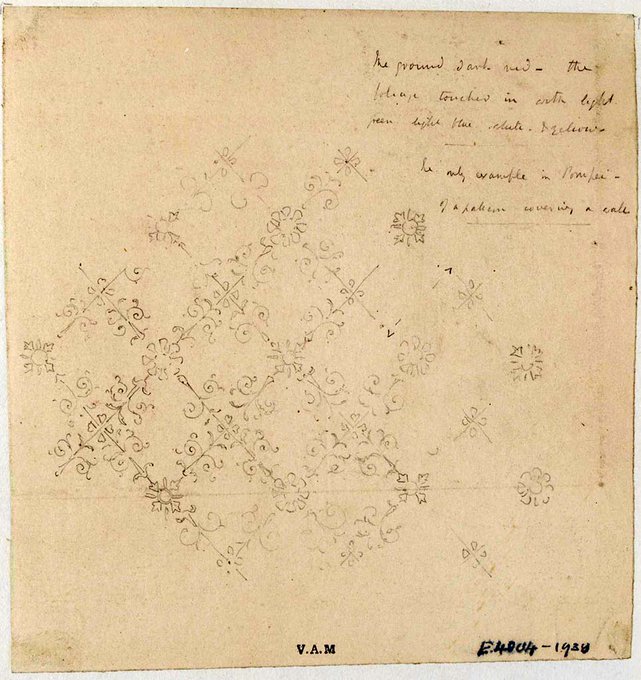 The ground dark red - the
foliage touched in with light
green light blue white & yellow
The only example in Pompei -
of a pattern covering a wall
V.A.M
E.4004-1938